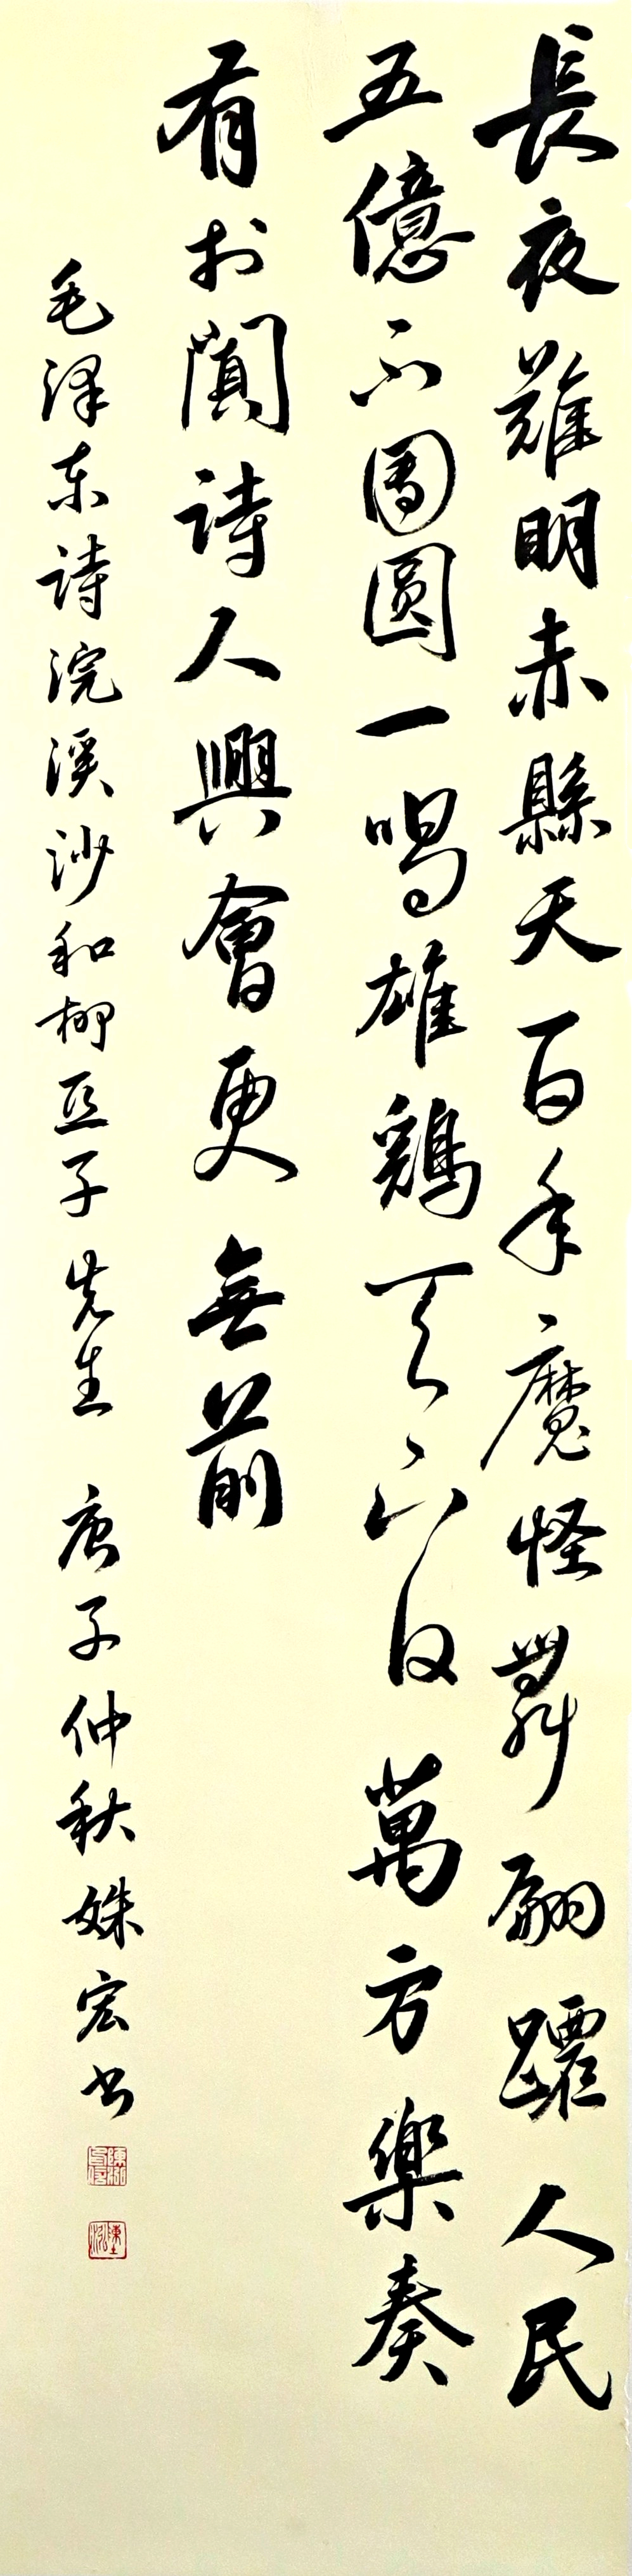 長夜難明赤縣天百年魔怪舞翩躚人民
五億不團圓一唱雄鷄天下白萬方樂奏
有於闐詩人興會更無前
毛泽东詩浣溪沙和柳亞子先生 庚子仲秋姝宏书